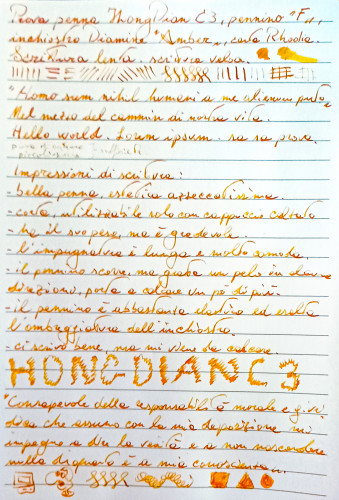 Prova penna HongDian C3, pennino "F",
inchiostro Diamine "Amber", carta Rhodia.
Scrittura lenta. scrittura veloce.
"Homo sum nihil humani a me alienum puto"
Nel mezzo del cammin di nostra vita.
Hello world. lorem ipsum. sa sa prova.
prova di scrittura
piccolissima
Impressioni di scrittura:
- bella penna, estetica azzeccatissima.
- corta, utilizzabile solo con cappuccio calzato
- ha il suo peso, ma è gradevole.
- l'impugnatura è lunga e molto comoda.
- il pennino scorre, ma gratta un pelo in alcune
direzioni, porta a calcare un po' di più.
- il pennino è abbastanza elastico ed esalta
l'ombreggiatura dell'inchiostro.
- ci scrivo bene, ma mi viene da calcare.
HONGDIAN C3
"Consapevole della responsabilità morale e giuri
dica che assumo con la mia deposizione mi
impegno a dire la verità e a non nascondere
nulla di quanto è a mia conoscenza".